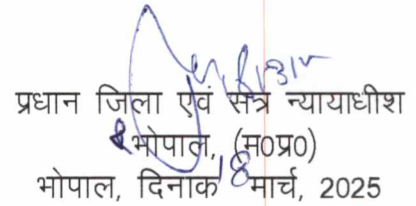 प्रधान जिला एवं सत्र न्यायाधीश
भोपाल, (म0प्र0)
भोपाल, दिनाक 18 मार्च, 2025